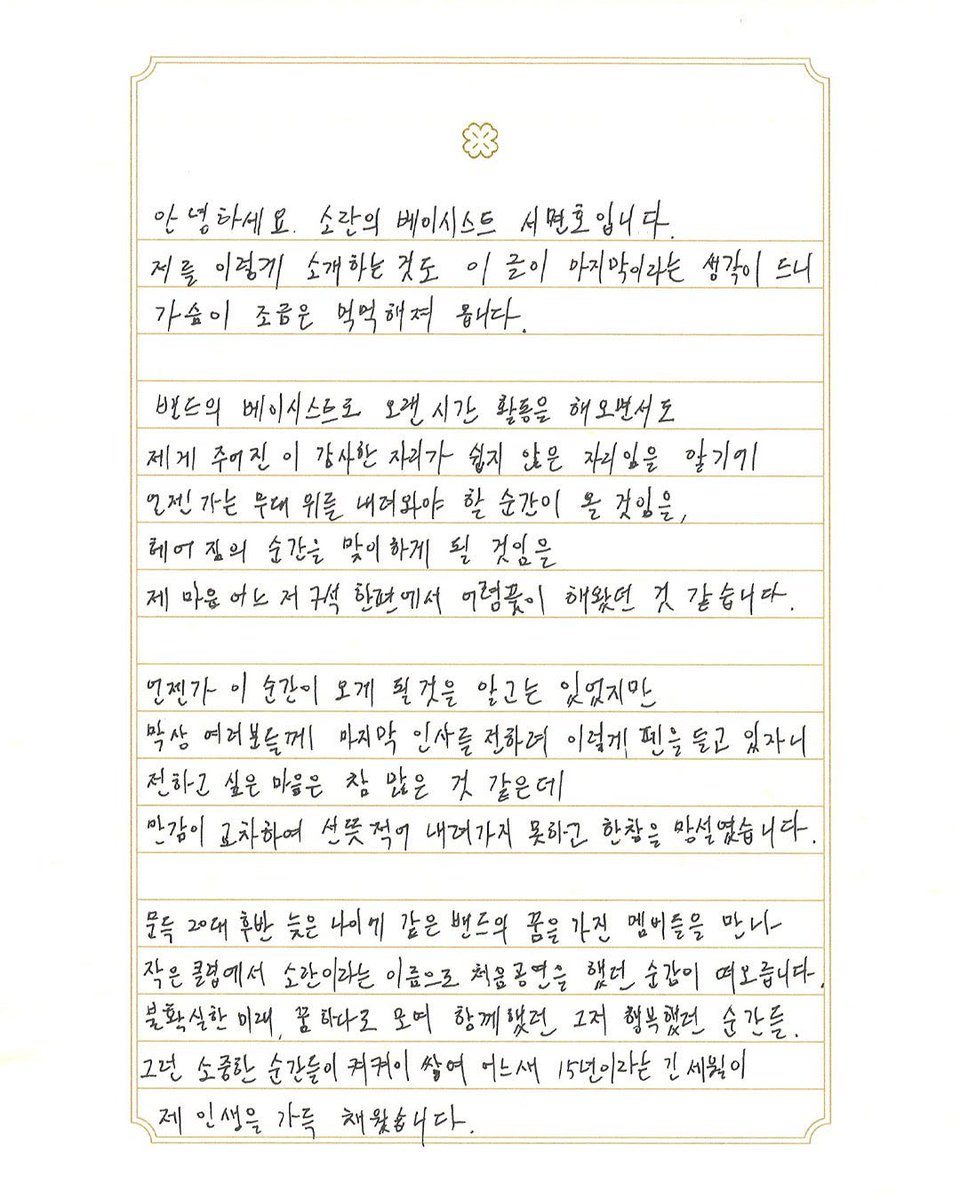 안녕하세요. 소란의 베이시스트 서면호입니다.
저를 이렇게 소개하는것도 이 글이 마지막이라는 생각이 드니
가슴이 조금은 먹먹해져 옵니다.
밴드의 베이시스트로 오랜 시간 활동을 해오면서도
제게 주어진 이 감사한 자리가 쉽지 않은 자리임을 알기에
언젠가는 무대 위를 내려와야 할 순간이 올 것임을,
헤어짐의 순간을 맞이하게 될 것임을
제 마음 어느 저 구석 한편에서 어렴풋이 해왔던 것 같습니다.
언젠가 이 순간이 오게 될것을 알고는 있었지만
막상 여러분들께 마지막 인사를 전하려 이렇게 펜을 들고 있자니
전하고 싶은 마음은 참 많은 것 같은데
만감이 교차하여 선뜻 적어 내려가지 못하고 한참을 망설였습니다.
문득 20대 후반 늦은 나이에 같은 밴드의 꿈을 가진 멤버들을 만나
작은 클럽에서 소란이라는 이름으로 처음공연을 했던 순간이 떠오릅니다.
불확실한 미래, 꿈 하나로 모여 함께했던 그저 행복했던 순간들.
그런 소중한 순간들이 켜켜이 쌓여 어느새 15년이라는 긴 세월이
제 인생을 가득 채웠습니다.